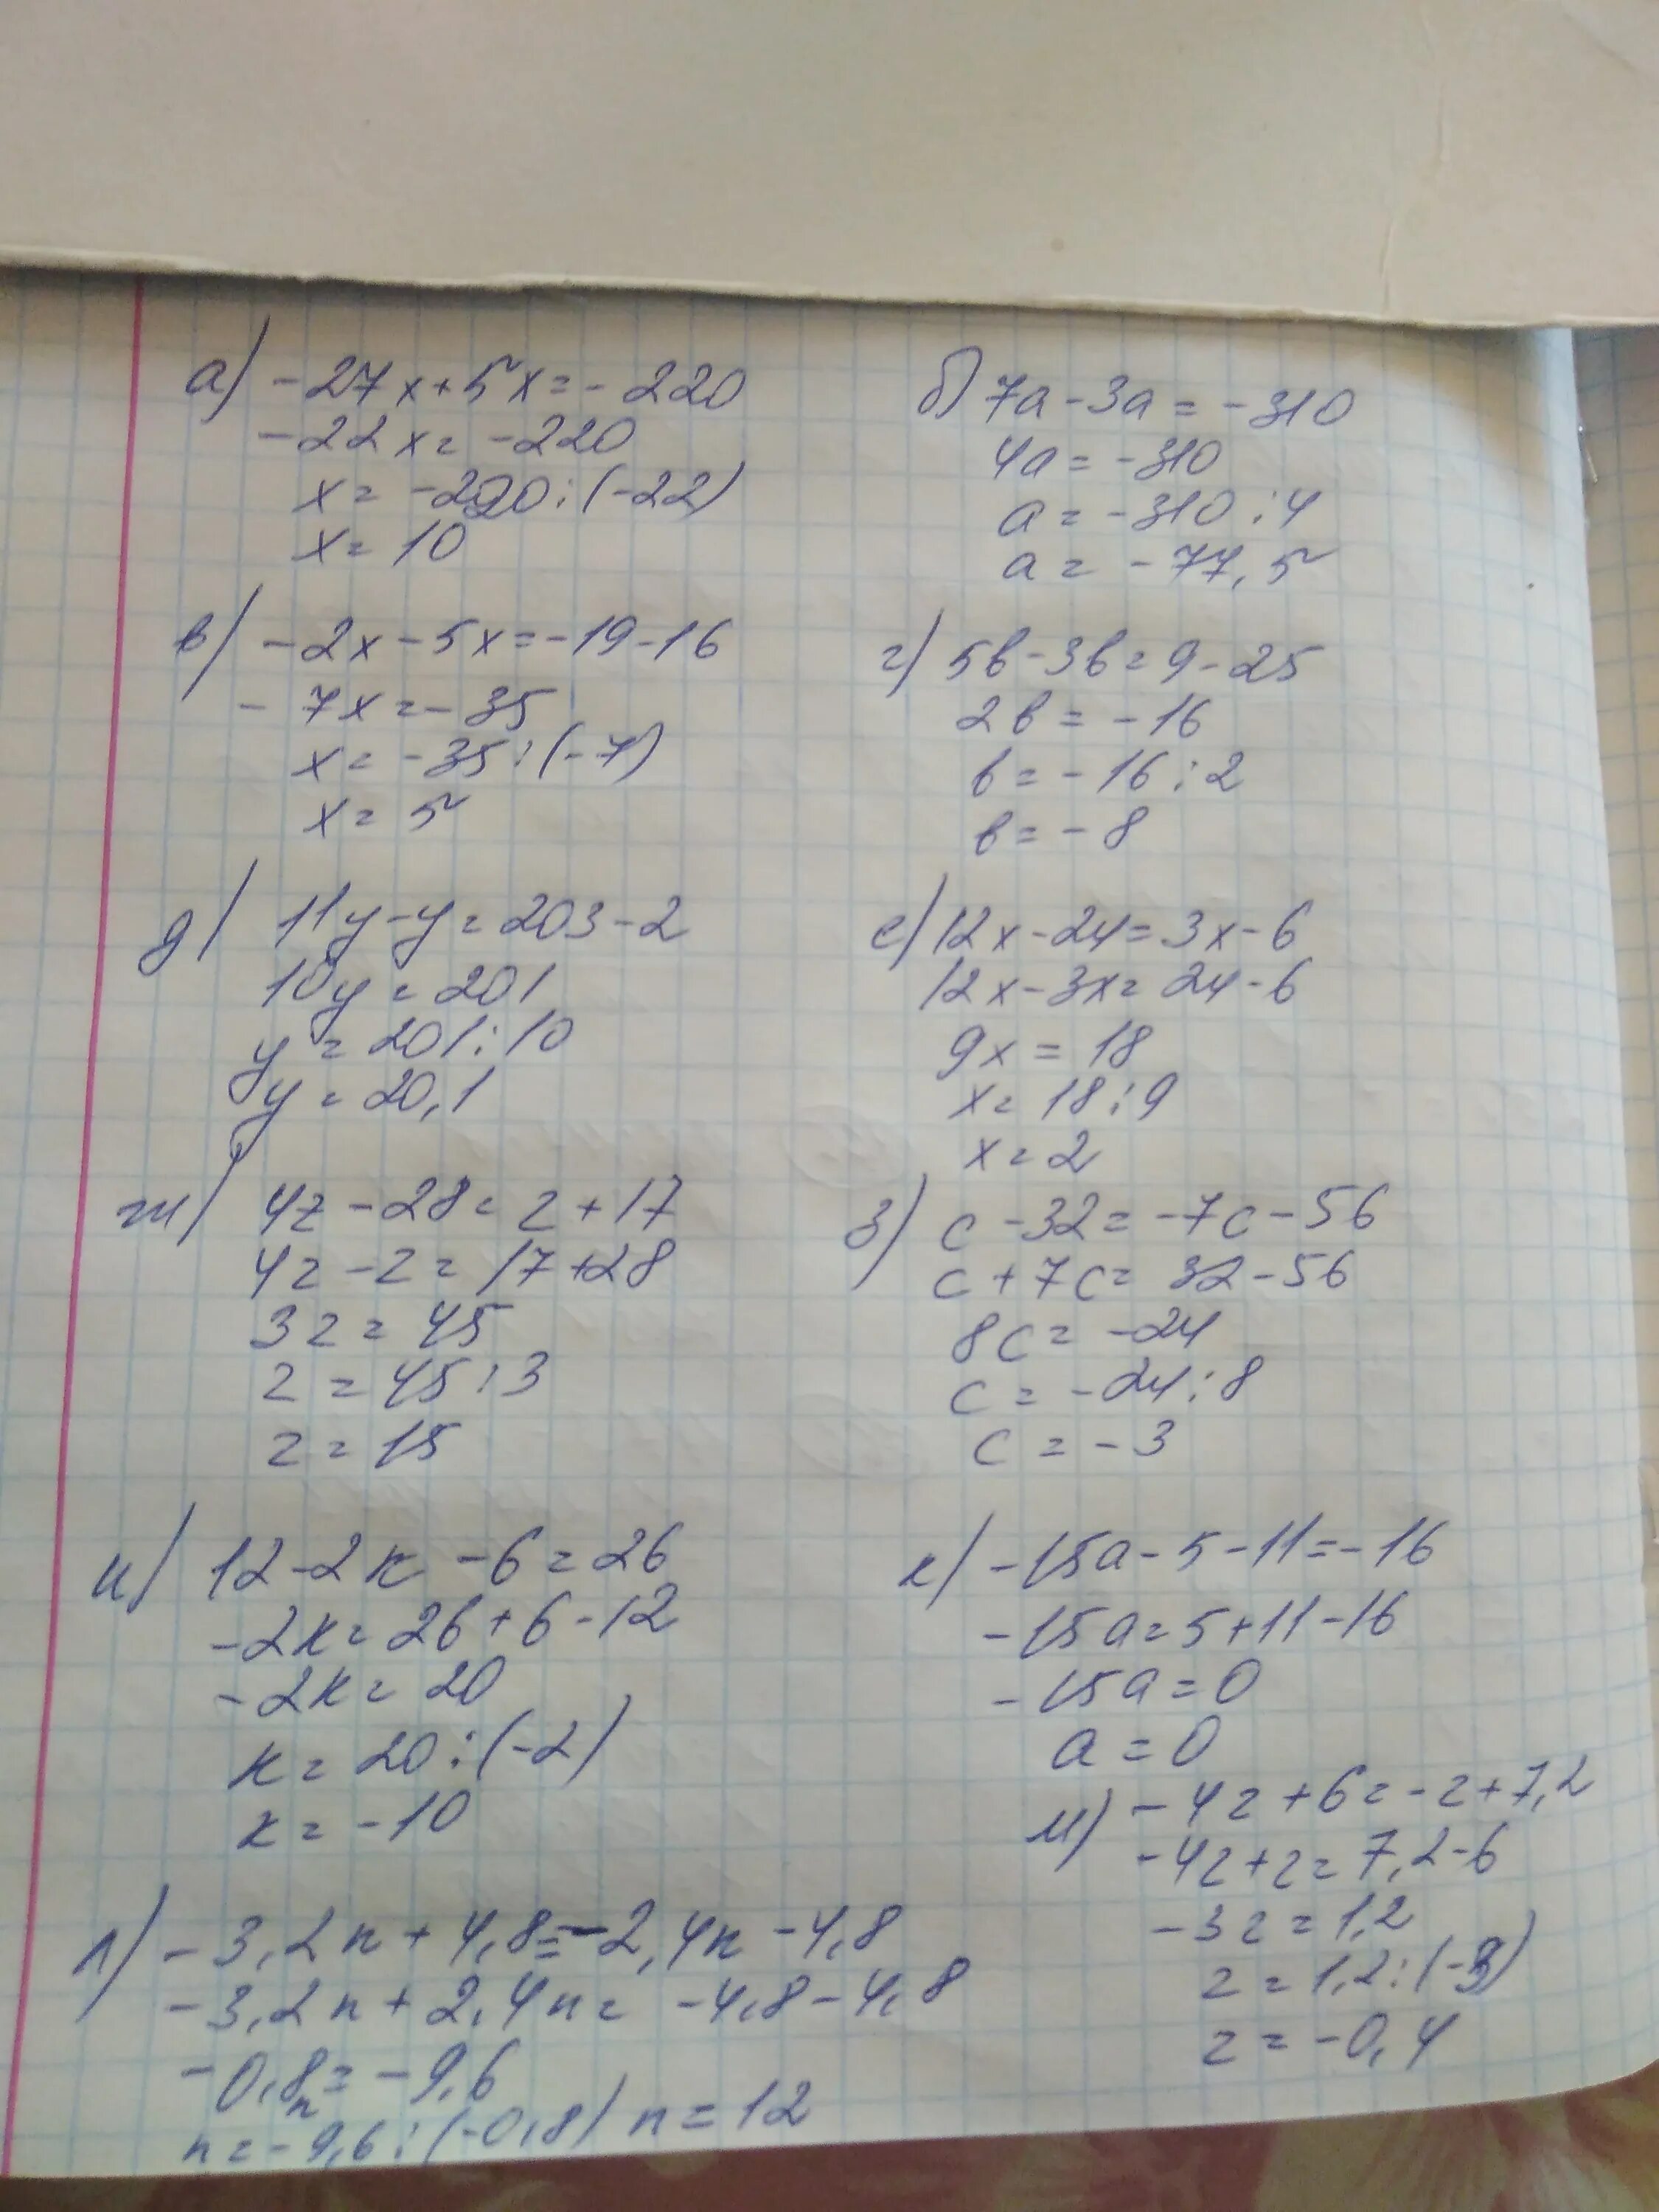 а) -27x+5x=-220
-22x=-220
x=-220:(-22)
x=10
б) 7a-3a=-310
4a=-310
a=-310:4
a=-77,5
в) -2x-5x=-19-16
-7x=-35
x=-35:(-7)
x=5
г) 5b-3b=9-25
2b=-16
b=-16:2
b=-8
д) 11y-y=203-2
10y=201
y=201:10
y=20,1
е) 12x-24=3x-6
12x-3x=24-6
9x=18
x=18:9
x=2
ж) 4z-28=z+17
4z-z=17+28
3z=45
z=45:3
z=15
з) c-32=-7c-56
c+7c=32-56
8c=-24
c=-24:8
c=-3
и) 12-2к-6=26
-2к=26+6-12
-2к=20
к=20:(-2)
к=-10
к) -15a-5-11=-16
-15a=5+11-16
-15a=0
a=0
л) -3,2n+4,8=-2,4n-4,8
-3,2n+2,4n=-4,8-4,8
-0,8n=-9,6
n=-9,6:(-0,8) n=12
м) -4z+6=-z+7,2
-4z+z=7,2-6
-3z=1,2
z=1,2:(-3)
z=-0,4